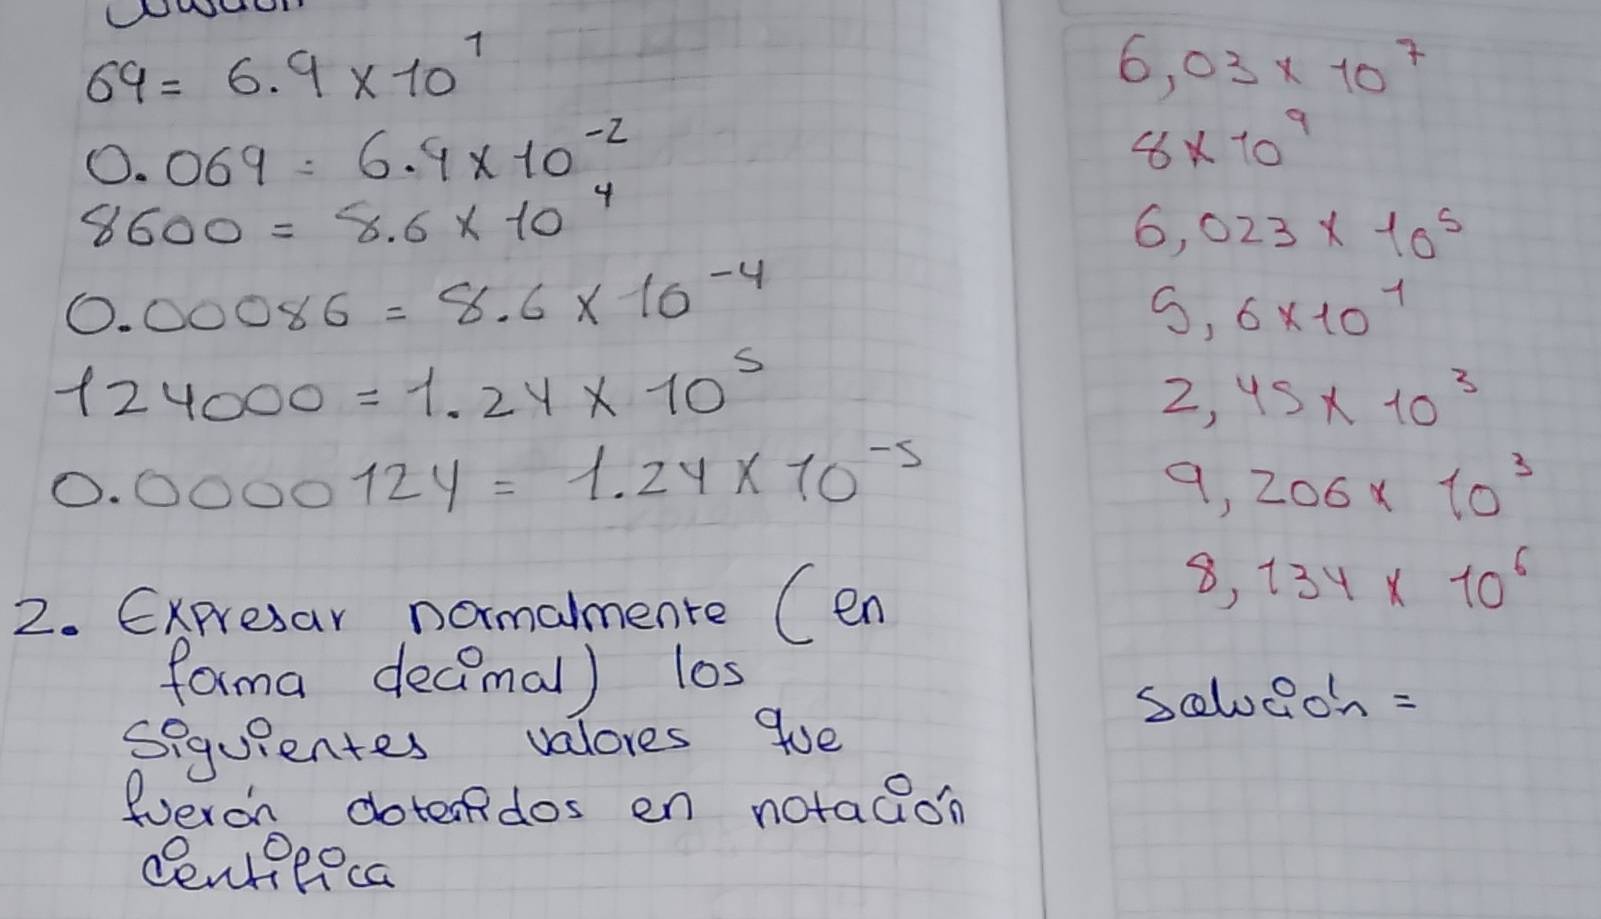 69 = 6.9 x 10^1
0.069 = 6.9 x 10^-2
8600 = 8.6 x 10^4
0.00086 = 8.6 x 10^-4
124000 = 1.24 x 10^5
0.0000124 = 1.24 x 10^-5
2. Expresar normalmente (en
forma decimal) los
siguientes valores que
fuerón obtenidos en notación
centifica
6,03 x 10^7
8 x 10^9
6,023 x 10^5
5,6 x 10^1
2,45 x 10^3
9,206 x 10^3
8,134 x 10^6
solución =